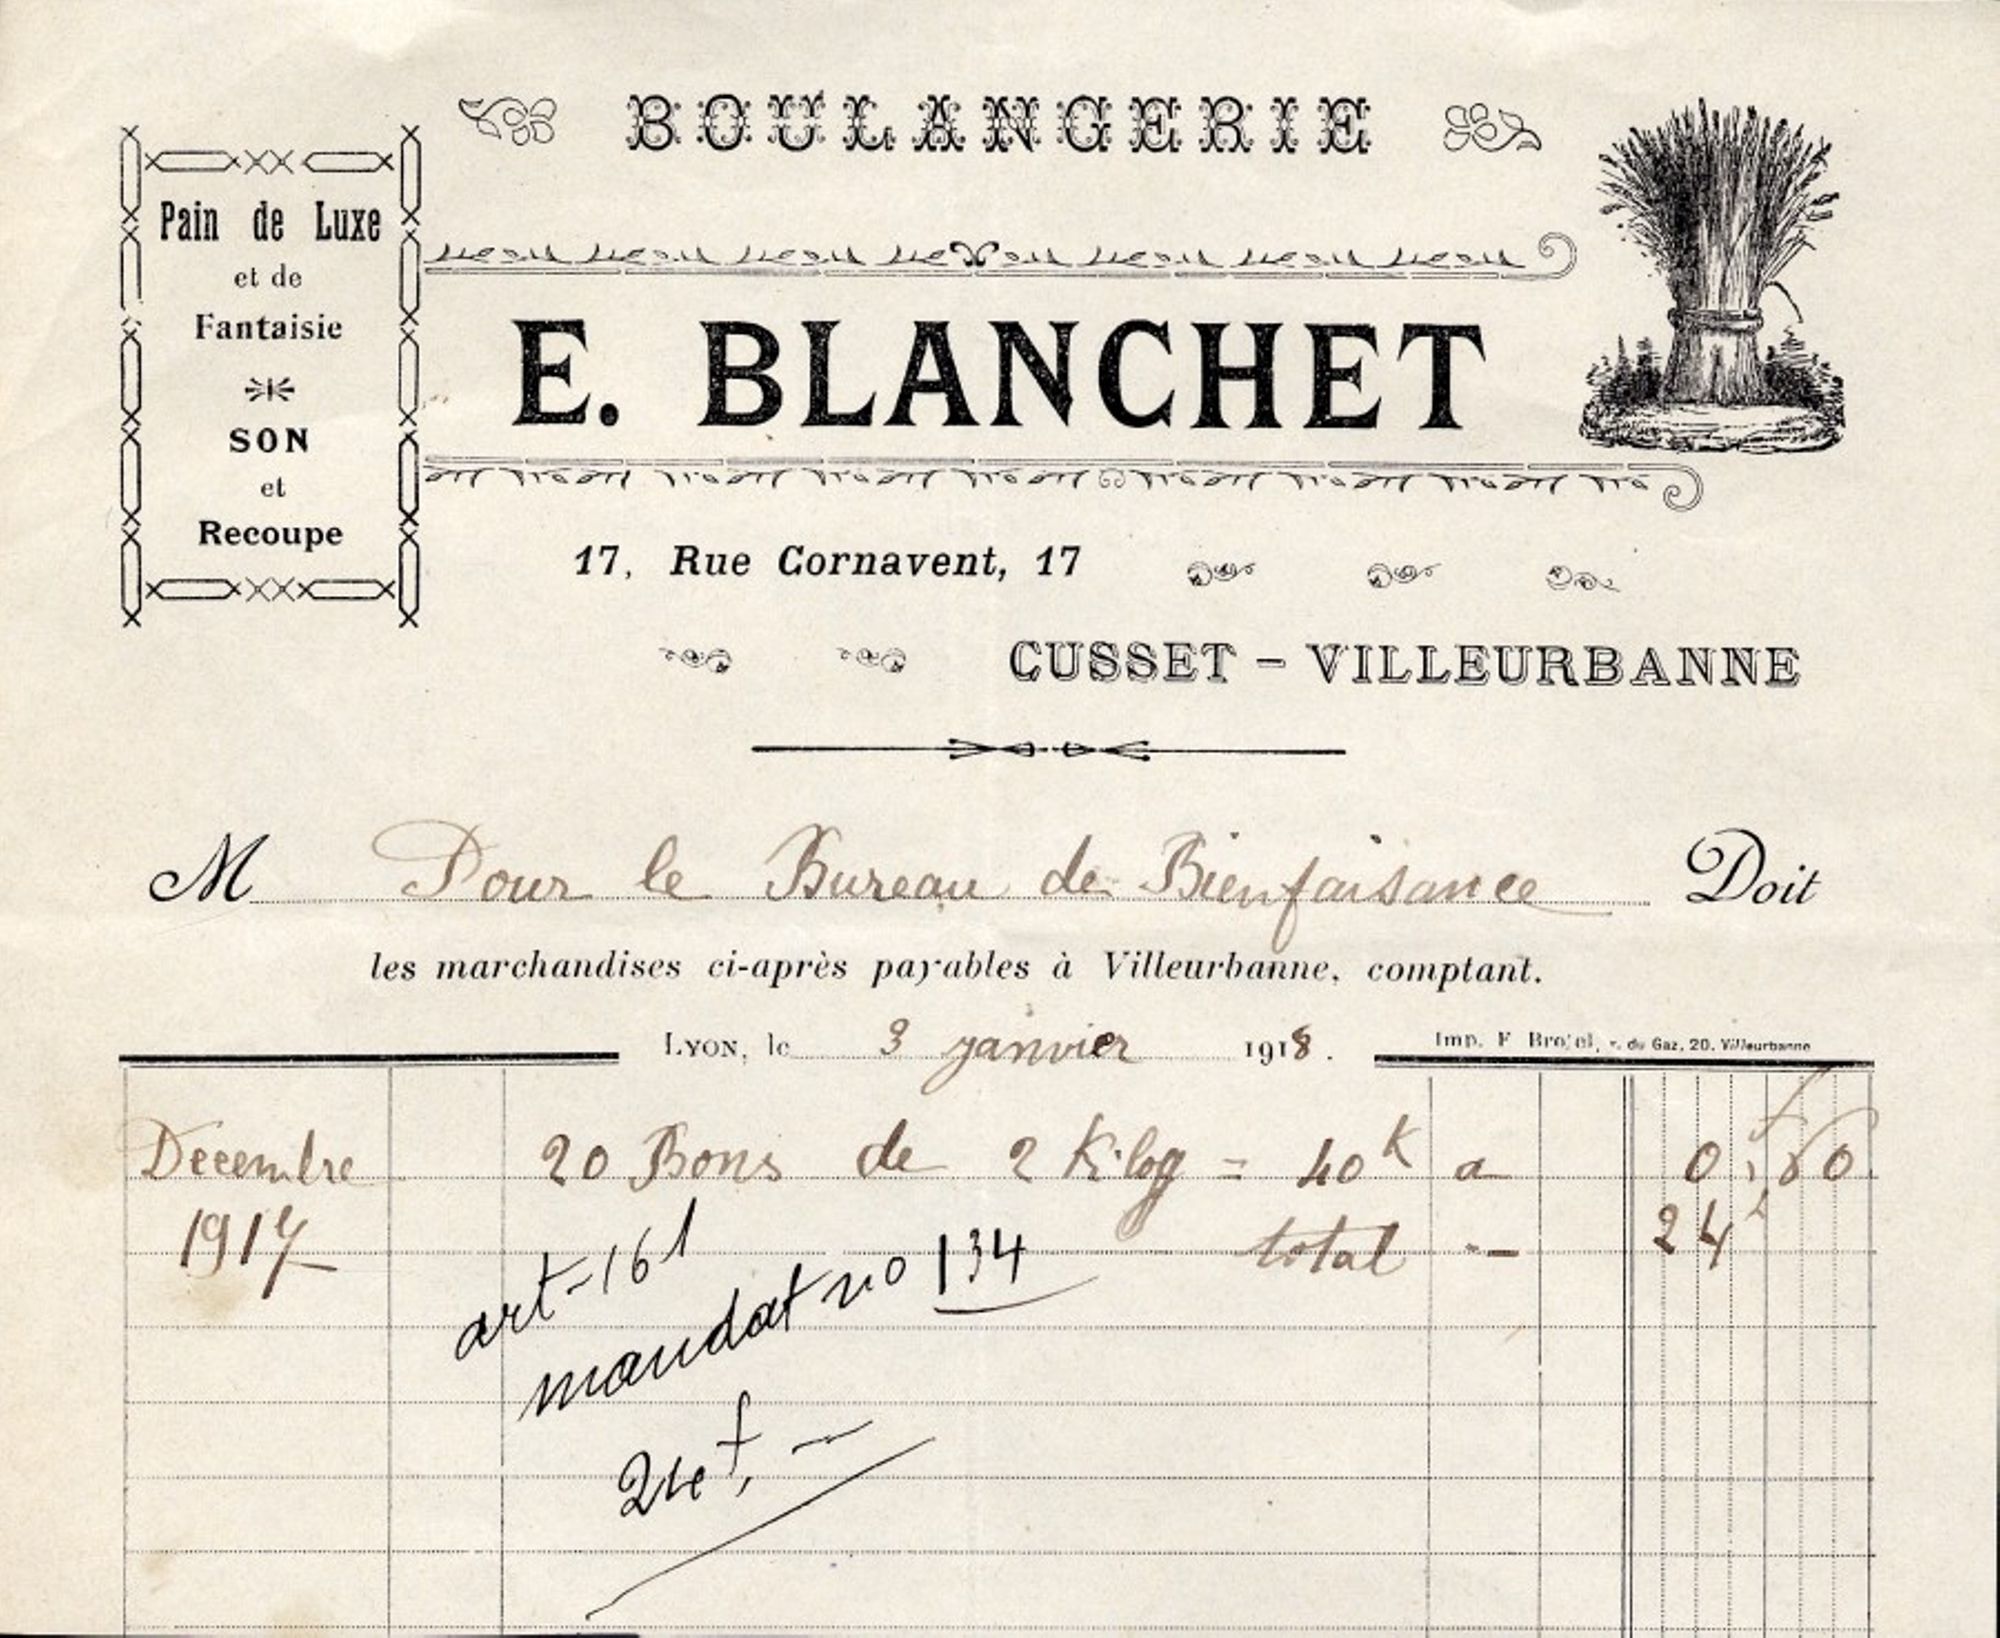 BOULANGERIE
Pain de Luxe
et de
Fantaisie
SON
et
Recoupe
E. BLANCHET
17, Rue Cornavent, 17
CUSSET - VILLEURBANNE
M Pour le Bureau de Bienfaisance Doit
les marchandises ci-après payables à Villeurbanne, comptant.
Lyon, le 3 janvier 1918.
Imp. F Brojel, r. du Gaz, 20. Villeurbanne
Decembre 20 Bons de 2 Kilog = 40k a 0,f60
1917 total -- 24f
art-161
mandat no 134
24f, -